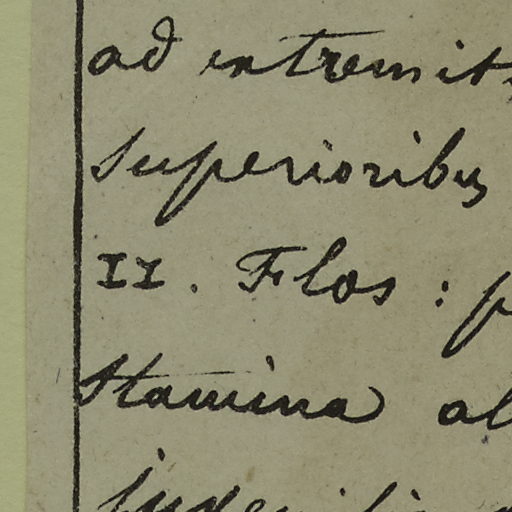 ad extremit
superioribus
II. Flos : p
Stamina al